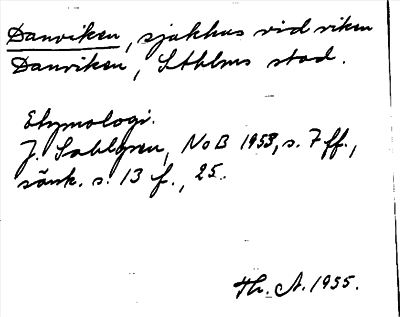 Danviken, sjukhus vid viken
Danviken, Sthlms stad.
Etymologi.
J. Sahlgren, NoB 1953, s. 7 ff.,
särsk. s. 13 f., 25.
Th. A. 1955.